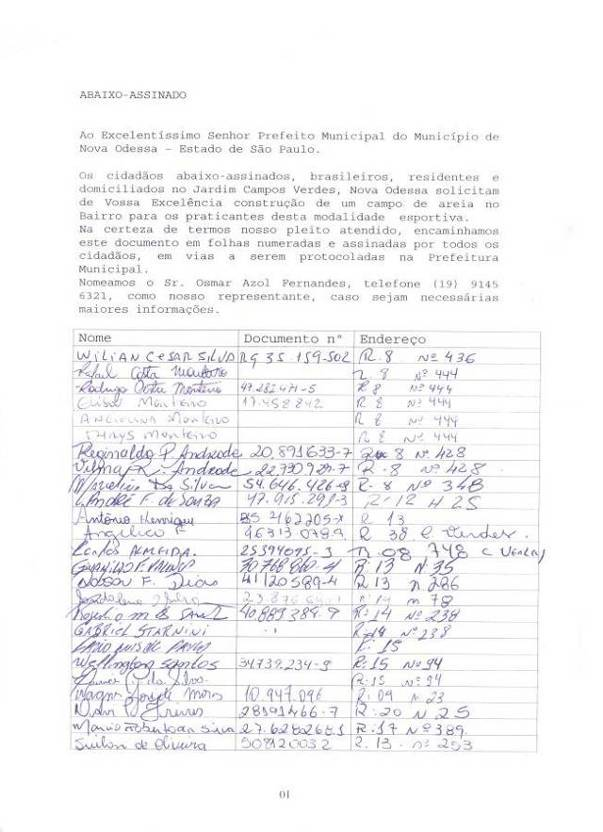 ABAIXO-ASSINADO
Ao Excelentíssimo Senhor Prefeito Municipal do Município de
Nova Odessa - Estado de São Paulo.
Os cidadãos abaixo-assinados, brasileiros, residentes e
domiciliados no Jardim Campos Verdes, Nova Odessa solicitam
de Vossa Excelência construção de um campo de areia no
Bairro para os praticantes desta modalidade esportiva.
Na certeza de termos nosso pleito atendido, encaminhamos
este documento em folhas numeradas e assinadas por todos os
cidadãos, em vias a serem protocoladas na Prefeitura
Municipal.
Nomeamos o Sr. Osmar Azol Fernandes, telefone (19) 9145
6321, como nosso representante, caso sejam necessárias
maiores informações.
Nome Documento n° Endereço
WILIAN CESAR SILVA RG 35 159-502 R. 8 Nº 436
Rafael Costa Monteiro R. 8 Nº 444
Rodrigo Costa Monteiro R 8 Nº 444
Monteiro 17.458.842 R 8 Nº 444
Monteiro R 8 Nº 444
Monteiro R 8 Nº 444
Reginaldo P. Andrade 20.891633-7 8 Nº 428
Vilma R. Andrade R. 8 Nº 428
da Silva 54.646.426-8 R. 8 Nº 348
André F. de Souza R 12 H 25
Antônio Henrique R 13
Angélico F R 38 C Verdes
ALMEIDA. 08 748
R. 13 N. 35
F. Dias 41120589-4 R 13 n 286
n 78
40.889389.9 R: 14 Nº 238
GABRIEL STARNINI R. 14 Nº 238
R: 15
Wellington Santos 34.739.234-9 R: 15 Nº 94
da Silva R: 15 Nº 94
Wagner 10.947.096 R: 09 N 23
28191466-7 R: 20 N 25
Silva 27.6282681 R: 17 Nº 389
de Oliveira 508120032 R. 13 - nº 253
01